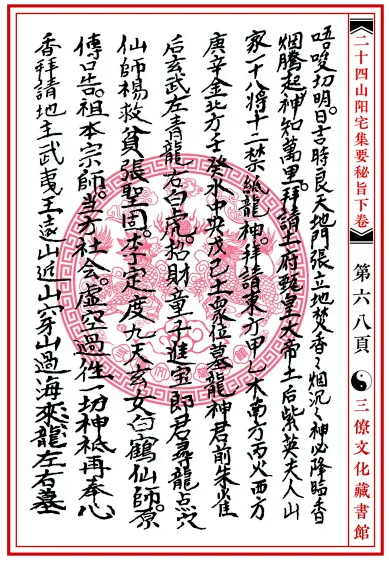 二十四山阳宅集要秘旨下卷
第六八頁
三僚文化藏書館
唔唆切明。日吉時良天地門張立地焚香々烟沉々神必降臨香
烟騰起神知萬里。拜請上府玉皇大帝土后紫英夫人山
家一十八将十二禁紙龍神。拜請東方甲乙木南方丙火西方
庚辛金北方壬癸水中央戊己土眾位墓龍神君前朱雀
后玄武左青龍右白虎。招財童子進宝郎君尋龍点穴
仙师楊救貧張聖固。李定度九天玄女白鶴仙師。原
傳口告。祖本宗師。当方社会。虛空過往一切神祇再奉心
香拜請地主武夷王遠山近山穿山過海來龍左右墓